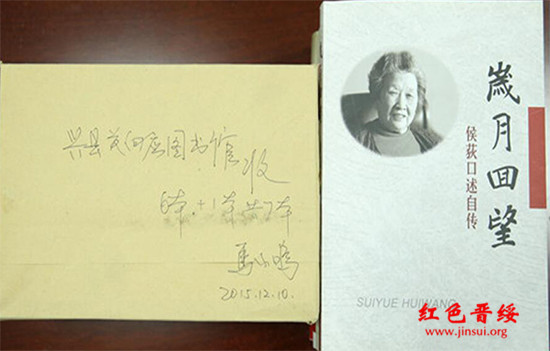 兴县黄白盔图书馆 收
6本+1本共7本
馬小鸣
2015.12.10.
歲月回望
侯荻口述自传
SUIYUE HUIWANG
红色晋绥
www.jinsui.org